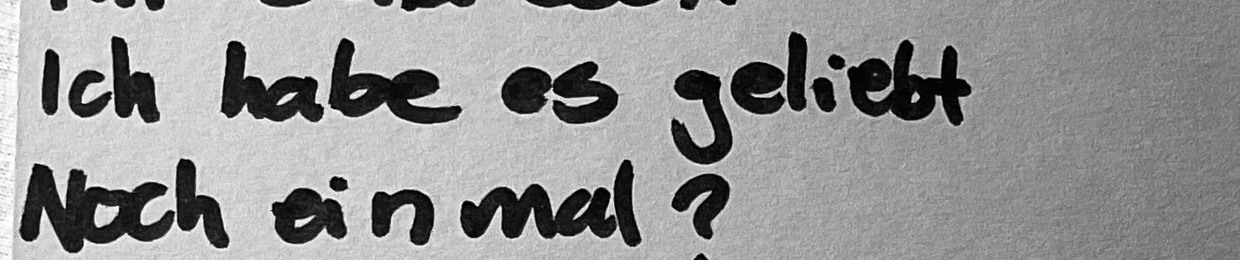 Ich habe es geliebt
Noch ein mal?